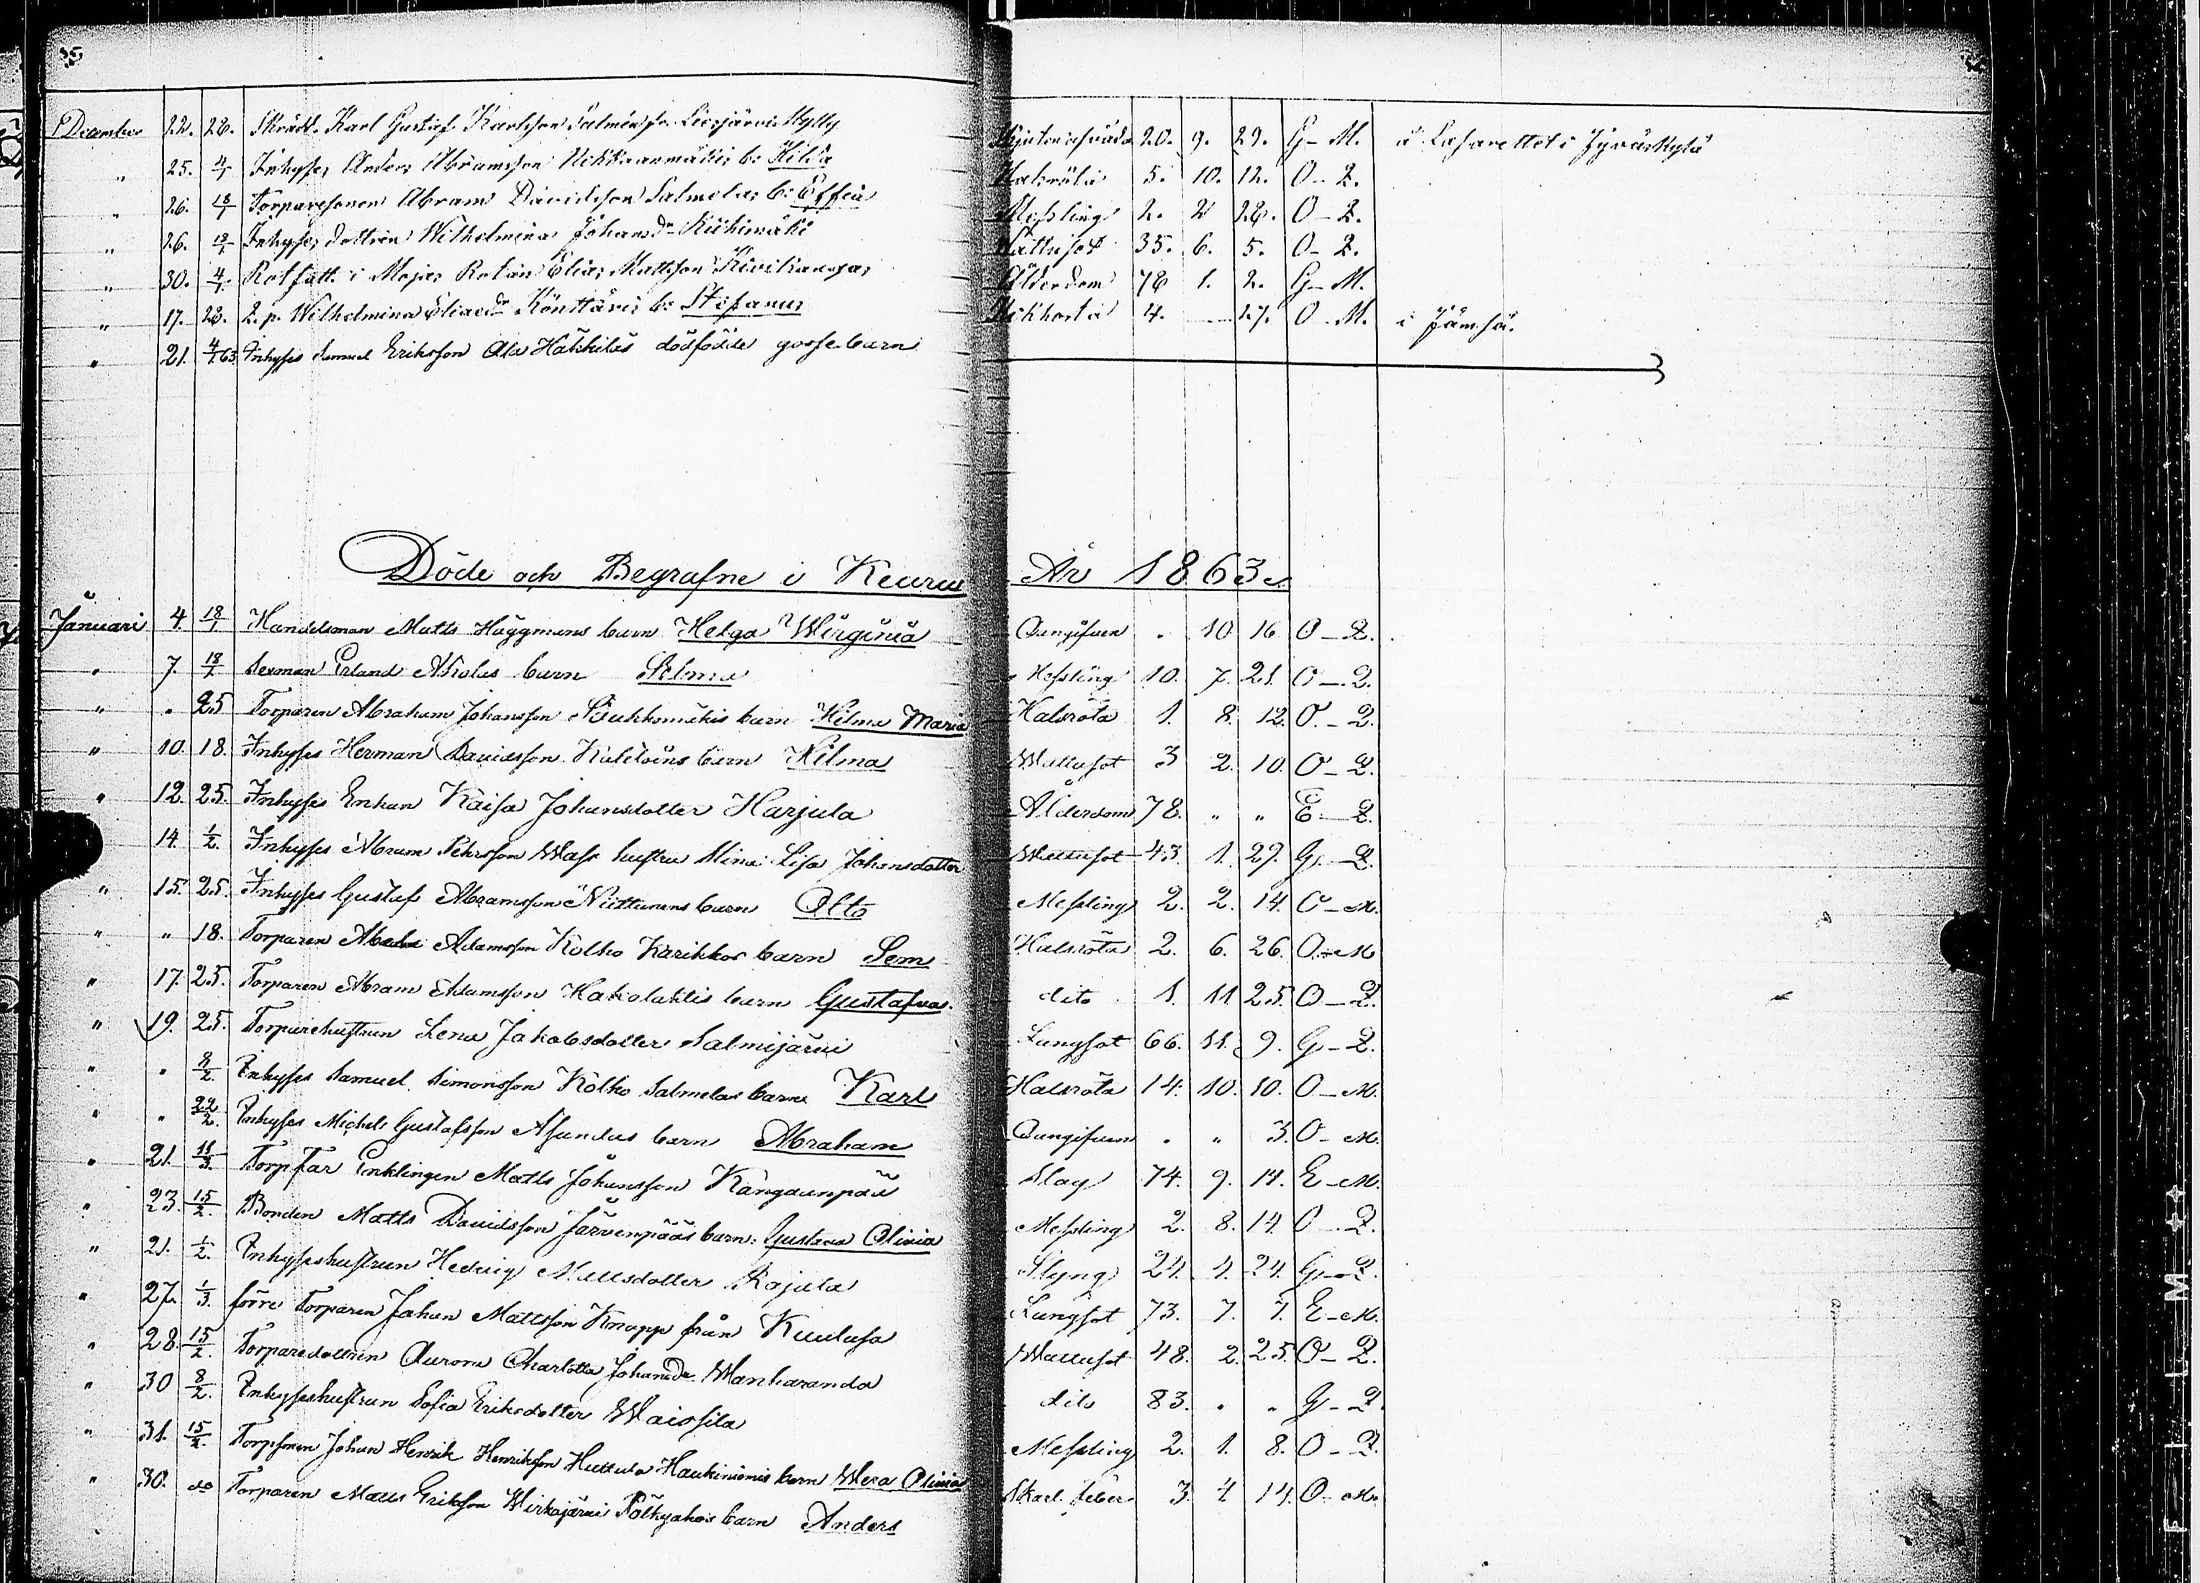 December 22. 28. Skrädd. Karl Gustaf Karlsson Salmén fr. Liesjärvi Mylly 20. 9. 29. G - M. å Lasarettet i Jyväskylä
" 25. 4/1 Inhyses Anders Abramsson Ukkaanmäkis b: Hilda Halsröta 5. 10. 12. O - Q.
" 26. 18/1 Torparesonen Abram Davidsson Salmelas b: Messling 2. 2 28. O - Q.
" 26. 18/1 Inhyses dottren Wilhelmina Johansdr Riihimäki Wattusot 35. 6. 5. O - Q.
" 30. 4/1 Rotfatt. i Rotan Elias Mattsson Kivikangas Ålderdom 78 1. 2. G - M.
" 17. 28. Q. p. Wilhelmina Eliaedr Könttäris b: Stefanus Kikhosta 4. 17. O - M. i Jämsä.
" 21. 4/1 63 Inhyses Samuel Eriksson Ala Häkkiläs dödfödde gossebarn
Döde och Begrafne i Keuru År 1863.
Januari 4. 18/1 Handelsman Matts Häggmans barn Helga Wirginia Oangifven " 10 16 O - Q.
" 7. 18/1 Sexman Erland Aholas barn Selma Messling 10. 7. 21. O - Q.
" " 25 Torparen Abraham Johansson Pukkomäkis barn Hilma Maria Halsröta 1. 8. 12. O - Q.
" 10. 18. Inhyses Herman Davidsson Kalitoins barn Hilma Wattusot 3 2. 10. O - Q.
" 12. 25. Inhyses Enkan Kaisa Johansdotter Harjula Ålderdom 78. " " E - Q.
14. 1/2. Inhyses Abram Pehrsson Wass hustru Mina Lisa Johansdotter Wattusot 43. 1. 29. G - Q.
" 15. 25. Inhyses Gustaf Abramsson Niittunens barn Otto Messling 2. 2. 14. O - M.
" " 18. Torparen Adamsson Kolho Karikkos barn Sem Halsröta 2. 6. 26. O - M
" 17. 25. Torparen Abram Adamsson Hakolahtis barn Gustafva. dito 1. 11 25. O - Q.
" 19. 25. Torparehustrun Lena Jakobsdotter Salmijärvi Lungsot 66. 11. 9. G - Q.
" " 8/2. Inhyses Samuel Simonsson Kolho Salmelas barn Karl Halsröta 14. 10. 10. O - M.
" " 22/2. Inhyses Michel Gustafsson Asundas barn Abraham Oangifven " " 3. O - M.
" 21. 11/3. Torpfar Enklingen Matts Johansson Kangaanpää Slag 74. 9. 14. E - M.
" 23. 15/2. Bonden Matts Davidsson Järvenpääs barn: Gustava Olivia Messling 2. 8. 14. O - Q.
" 21. 1/2. Inhyseshustrun Hedvig Mattsdotter Rajala Styng 24. 4. 24. G - Q.
" 27. 1/3. förre Torparen Johan Mattsson Knapp från Kuulasa Lungsot 73. 7. 7. E - M.
" 28. 15/2. Torparedottren Aurora Charlotta Johansdr. Wanharanda Wattusot 48. 2. 25. O - Q.
" 30 8/2. Inhyseshustrun Sofia Eriksdotter Waissila dito 83. " " G - Q.
" 31. 15/2. Torpsonen Johan Henrik Henriksson Huttula Haukiniemis barn Wera Olivia Messling 2. 1. 8. O - Q.
" 30. do Torparen Matts Eriksson Wirkajärvi Pölkyahos barn Anders Skarl. feber 3. 4 14. O - M.
FILM